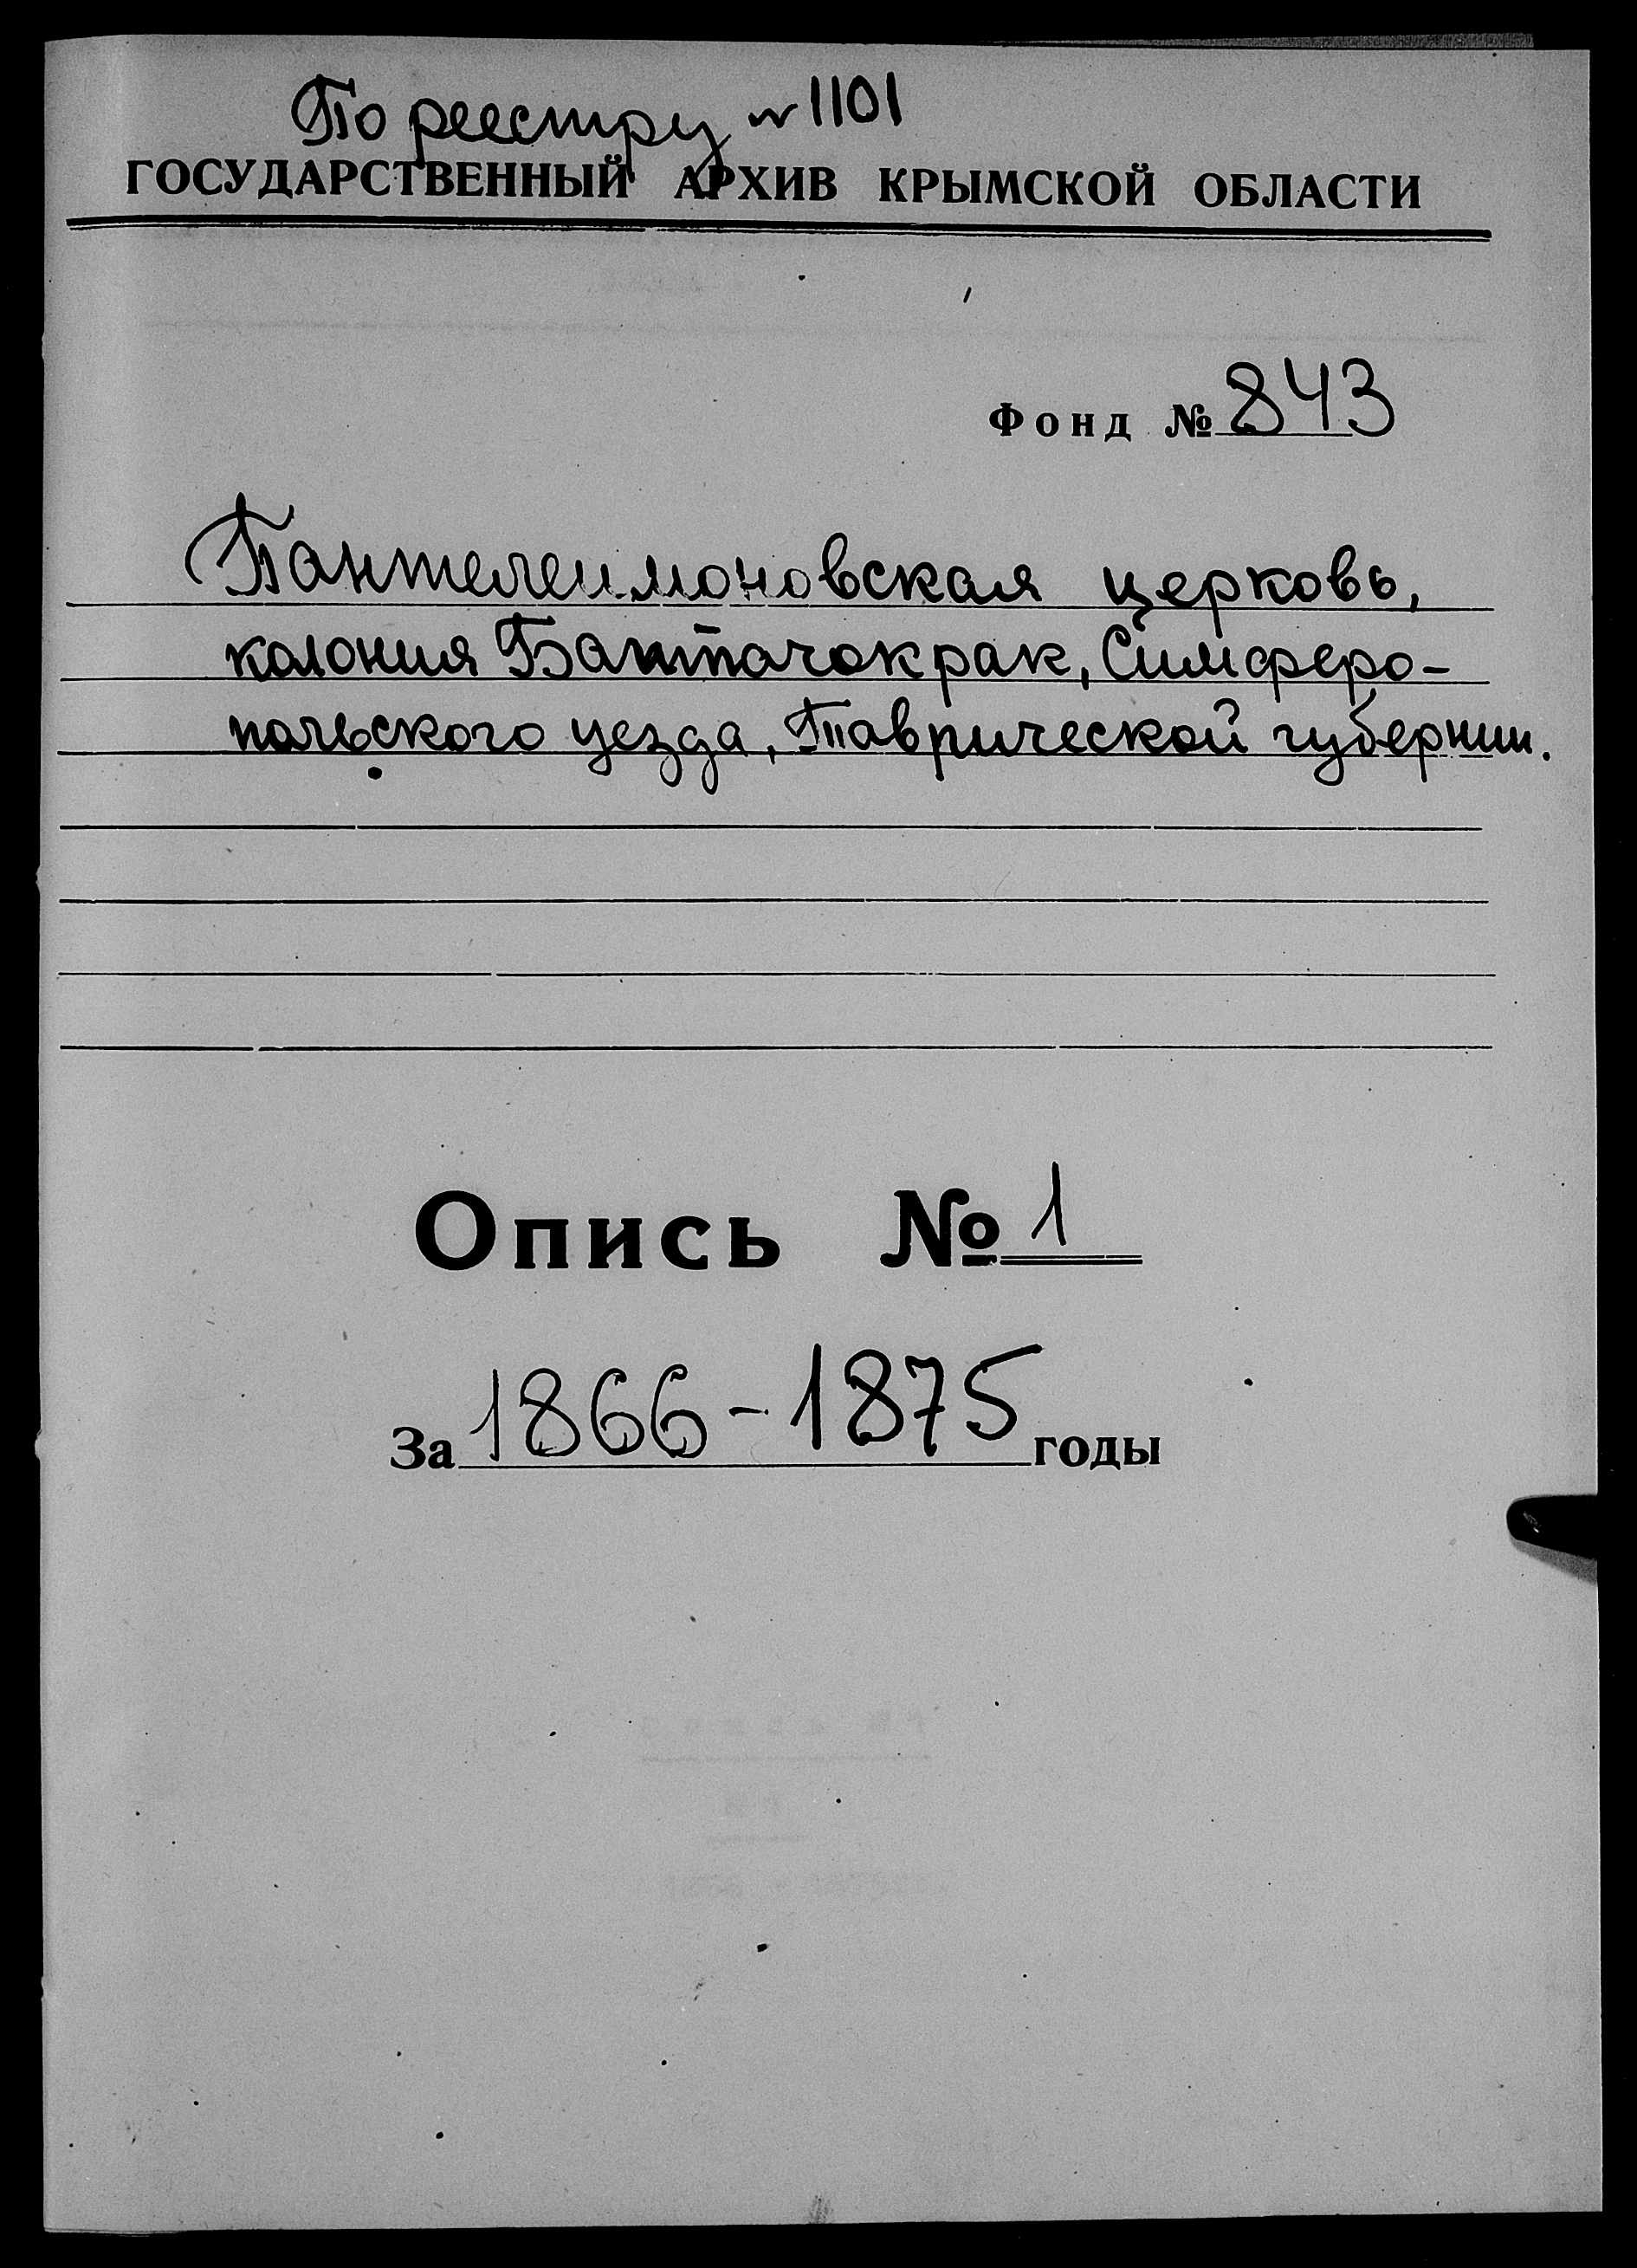 По реестру № 1101
ГОСУДАРСТВЕННЫЙ АРХИВ КРЫМСКОЙ ОБЛАСТИ
Фонд № 843
Пантелеимоновская церковь,
колония Симферо-
польского уезда, Таврической губернии.
Опись № 1
За 1866-1875 годы